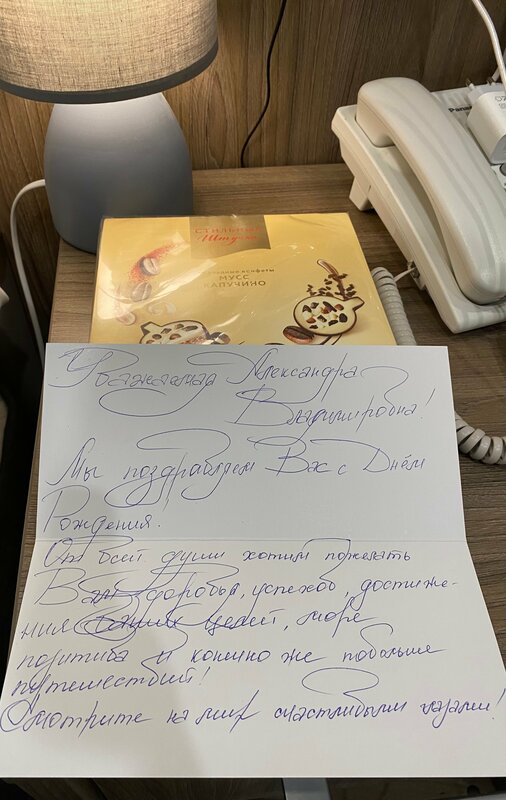 Panas
СТИЛЬНЫЕ
Штучки
конфеты
МУСС
КАПУЧИНО
Уважаемая Александра
Владимировна!
Мы поздравляем Вас с Днём
Рождения.
От всей души хотим пожелать
Вам здоровья, успехов, достиже-
ния целей, море
позитива и конечно же побольше
путешествий!
Смотрите на мир счастливыми глазами!